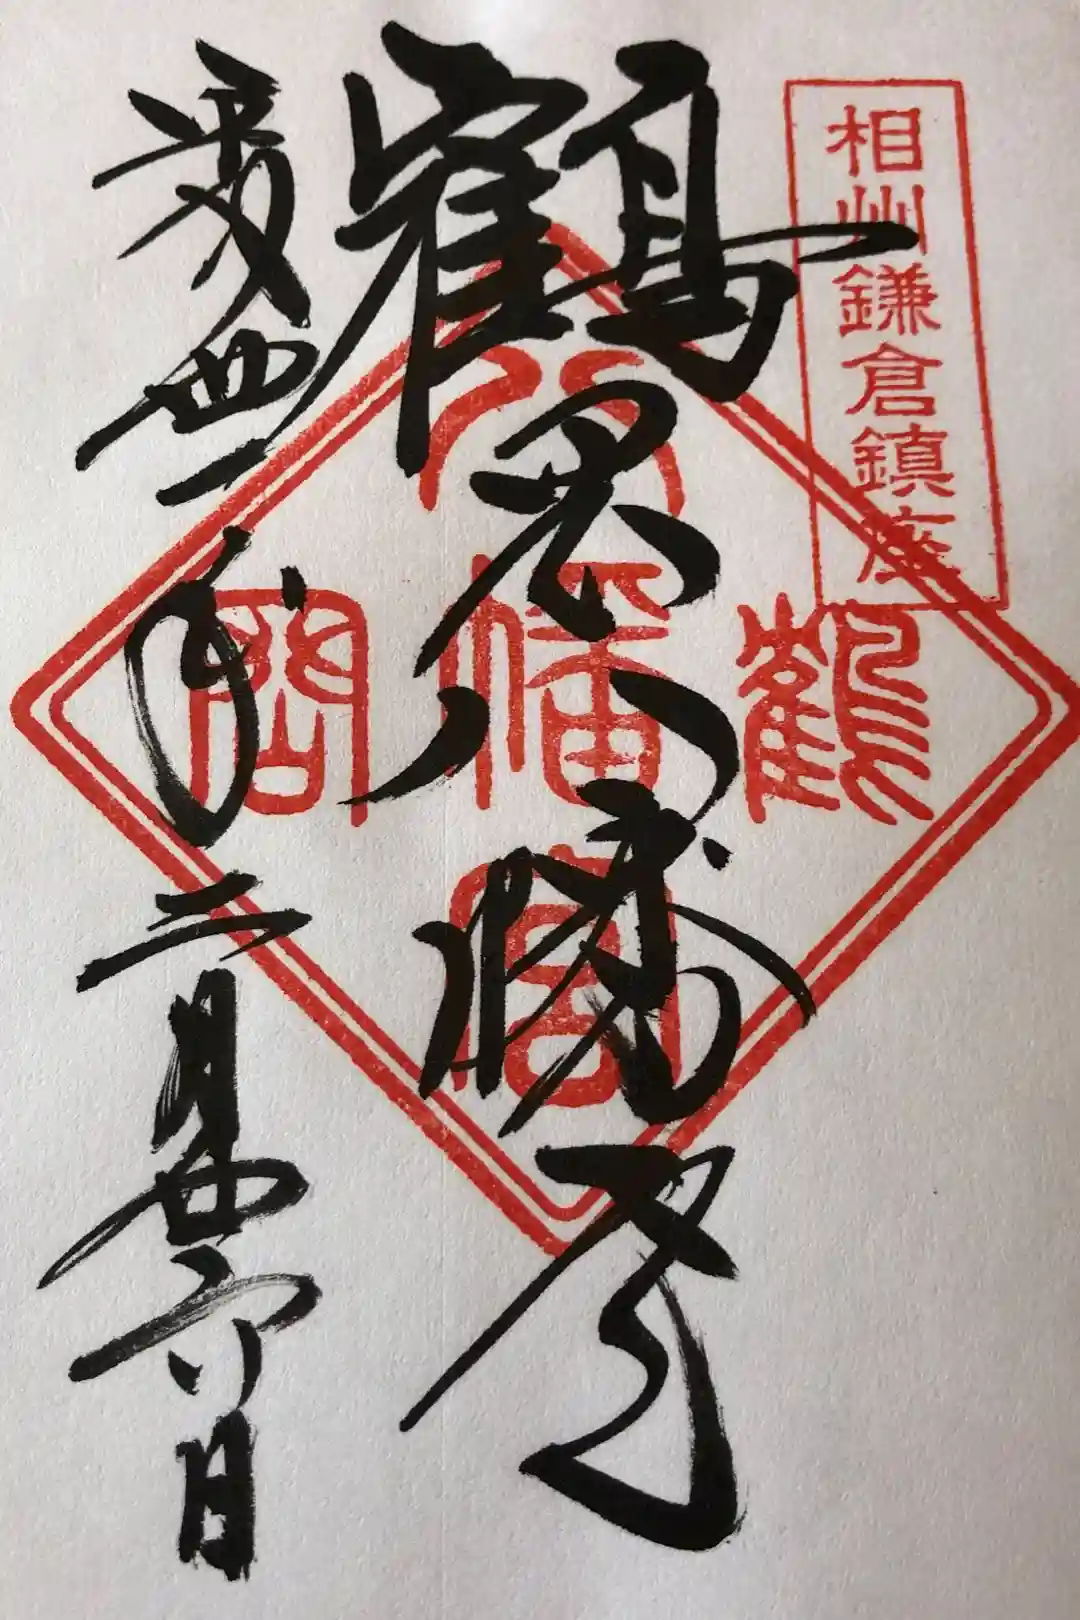 相州鎌倉鎮座
鶴岡八幡宮
鶴岡八幡宮
平成卅一年二月廿六日